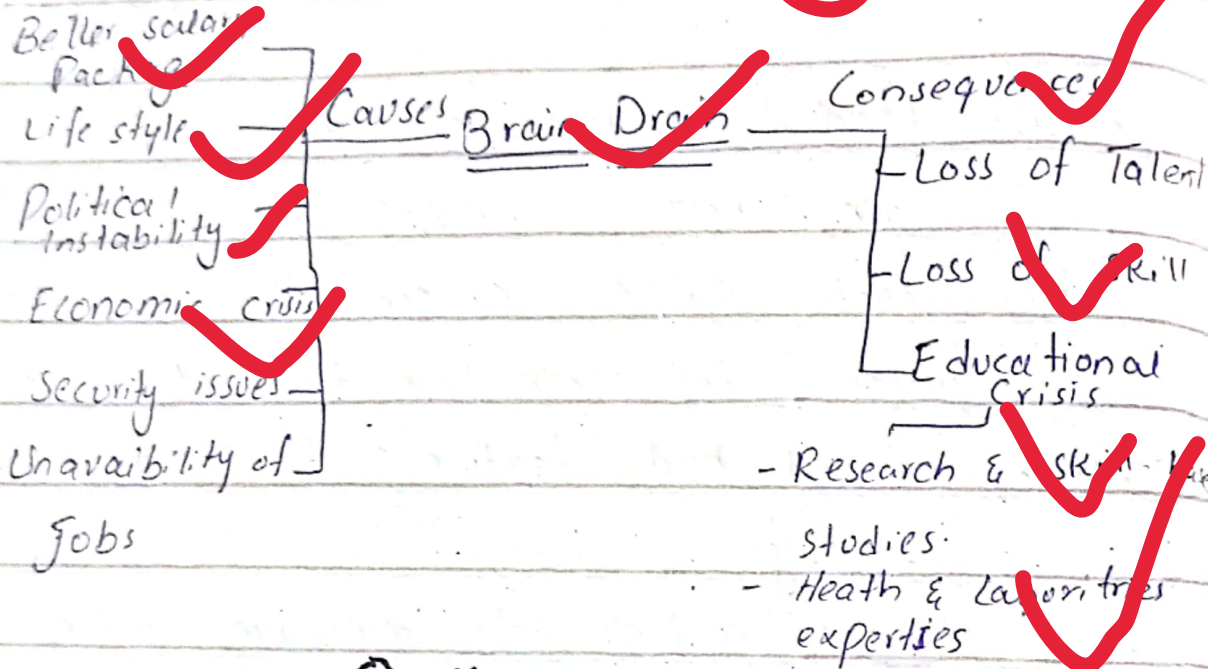 Better salary
Package
Life style
Political
instability
Economic crisis
Security issues
Unavaibility of
jobs
Causes
Brain Drain
Consequences
Loss of Talent
Loss of skill
Educational
Crisis
- Research & skill
studies.
- Heath & Laboritries
experties